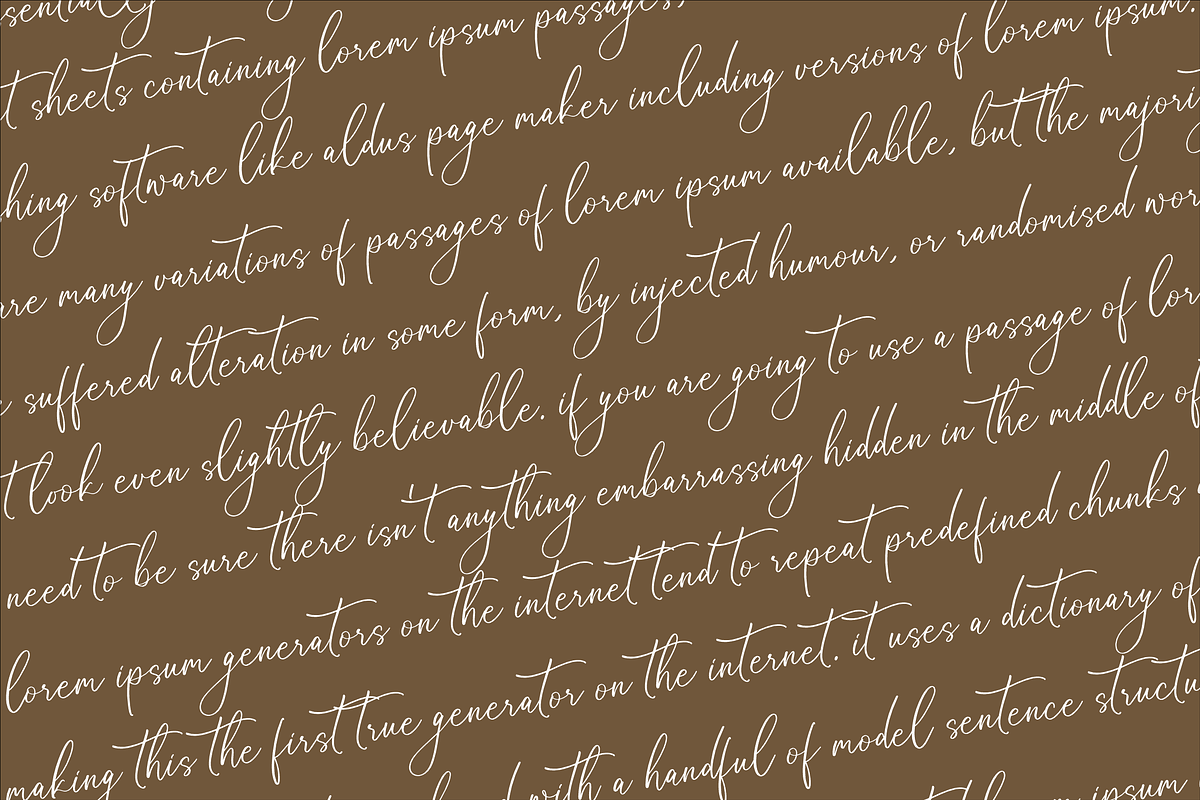 t sheets containing lorem ipsum passages,
hing software like aldus page maker including versions of lorem ipsum.
are many variations of passages of lorem ipsum available, but the majori
suffered alteration in some form, by injected humour, or randomised wor
t look even slightly believable. if you are going to use a passage of lor
need to be sure there isn't anything embarrassing hidden in the middle of
lorem ipsum generators on the internet tend to repeat predefined chunks
making this the first true generator on the internet. it uses a dictionary of
with a handful of model sentence structu
ipsum